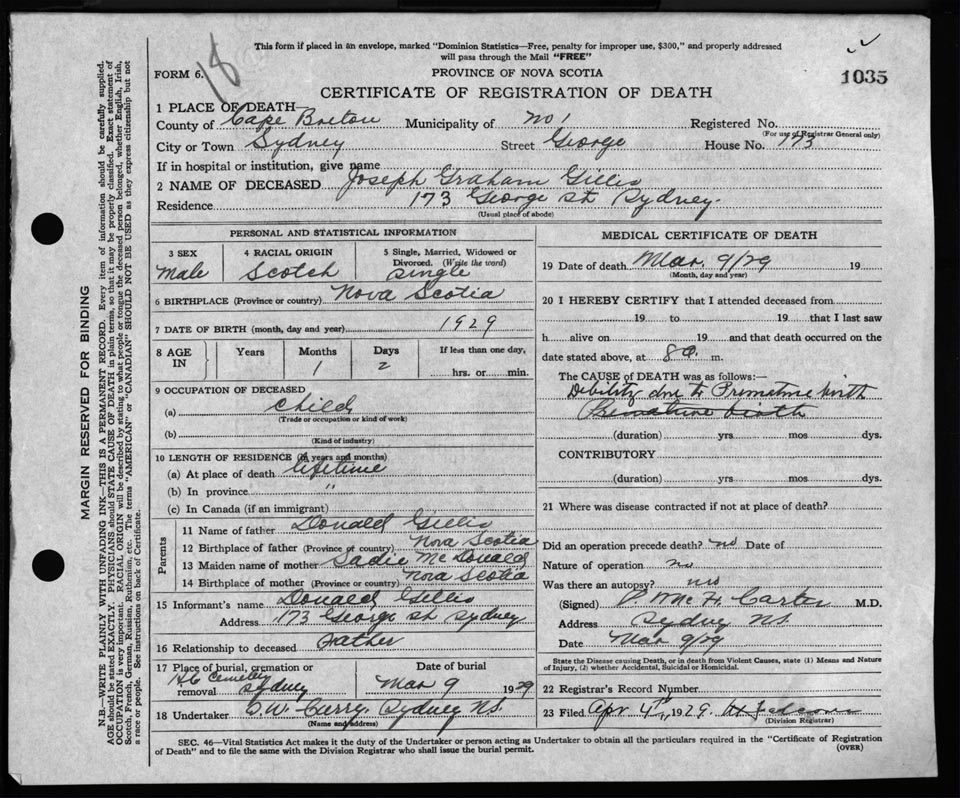 This form if placed in an envelope, marked "Dominion Statistics—Free, penalty for improper use, $300," and properly addressed
will pass through the Mail "FREE"
18
FORM 6.
PROVINCE OF NOVA SCOTIA
1035
CERTIFICATE OF REGISTRATION OF DEATH
1 PLACE OF DEATH—
County of Cape Breton Municipality of No 1 Registered No.
(For use of Registrar General only)
City or Town Sydney Street George House No. 173
If in hospital or institution, give name
2 NAME OF DECEASED Joseph Graham Gillis
Residence 173 George St Sydney.
(Usual place of abode)
PERSONAL AND STATISTICAL INFORMATION
3 SEX 4 RACIAL ORIGIN 5 Single, Married, Widowed or
Divorced. (Write the word)
Male Scotch Single
6 BIRTHPLACE (Province or country) Nova Scotia
7 DATE OF BIRTH (month, day and year) 1929
8 AGE IN Years Months Days If less than one day,
1 2 hrs. or min.
9 OCCUPATION OF DECEASED
(a) Child
(Trade or occupation or kind of work)
(b)
(Kind of industry)
10 LENGTH OF RESIDENCE (in years and months)
(a) At place of death lifetime
(b) In province "
(c) In Canada (if an immigrant)
Parents
11 Name of father Donald Gillis
12 Birthplace of father (Province of country) Nova Scotia
13 Maiden name of mother Sadie McDonald
14 Birthplace of mother (Province or country) Nova Scotia
15 Informant's name Donald Gillis
Address 173 George St Sydney
16 Relationship to deceased Father
17 Place of burial, cremation or removal Date of burial
H C Cemetery
Sydney Mar 9 1929
18 Undertaker C. W. Curry. Sydney N.S.
(Name and address)
MEDICAL CERTIFICATE OF DEATH
19 Date of death Mar. 9/29 19
(Month, day and year)
20 I HEREBY CERTIFY that I attended deceased from
19 to 19 that I last saw
h alive on 19 and that death occurred on the
date stated above, at 8 a. m.
The CAUSE of DEATH was as follows:—
Debility due to Premature birth
Premature birth
(duration) yrs mos dys.
CONTRIBUTORY
(duration) yrs. mos. dys.
21 Where was disease contracted if not at place of death?
Did an operation precede death? no Date of
Nature of operation no
Was there an autopsy? no
(Signed) P. McF. Carter M.D.
Address Sydney N.S.
Date Mar 9/29
State the Disease causing Death, or in death from Violent Causes, state (1) Means and Nature
of Injury, (2) whether Accidental, Suicidal or Homicidal.
22 Registrar's Record Number
23 Filed Apr 4th, 1929.
(Division Registrar)
SEC. 46—Vital Statistics Act makes it the duty of the Undertaker or person acting as Undertaker to obtain all the particulars required in the "Certificate of Registration
of Death" and to file the same with the Division Registrar who shall issue the burial permit.
(OVER)
MARGIN RESERVED FOR BINDING
N.B.—WRITE PLAINLY WITH UNFADING INK—THIS IS A PERMANENT RECORD. Every item of information should be carefully supplied.
AGE should be stated EXACTLY. PHYSICIANS should STATE CAUSE OF DEATH in plain terms, so that it may be properly classified. Exact statement of
OCCUPATION is very important. RACIAL ORIGIN will be described by stating to what people or tongue the deceased person belonged, whether English, Irish,
Scotch, French, German, Russian, Ruthenian, etc. The terms "AMERICAN" or "CANADIAN" SHOULD NOT BE USED as they express citizenship but not
a race or people. See instructions on back of Certificate.